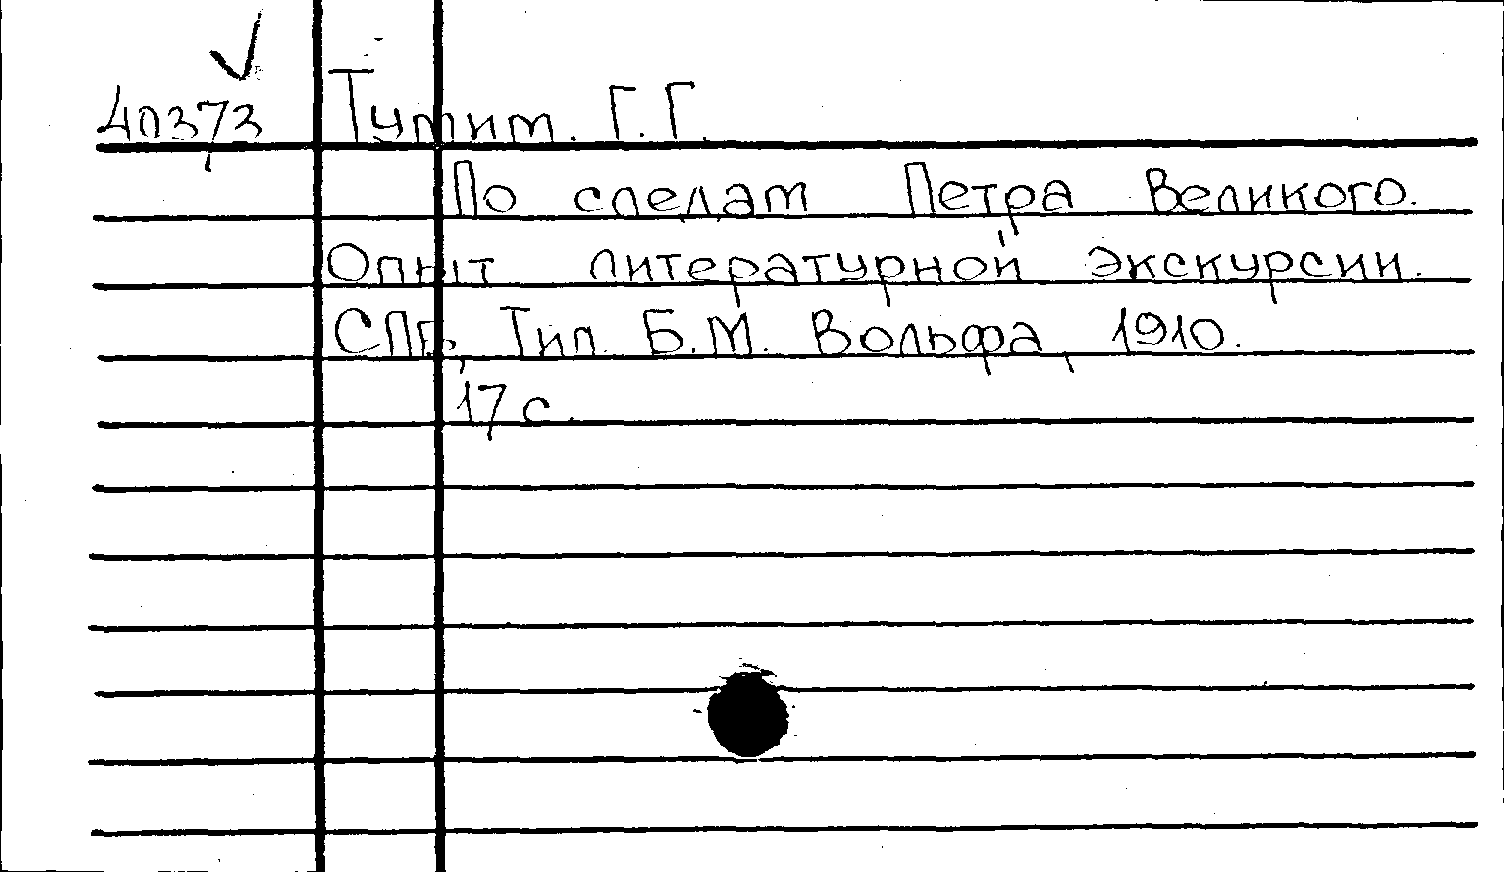 40373 Тутит. Г. Г.
По следам Петра Великого.
Опыт литературной экскурсии.
СПБ, Тип. Б.М. Вольфа, 1910.
17 с.